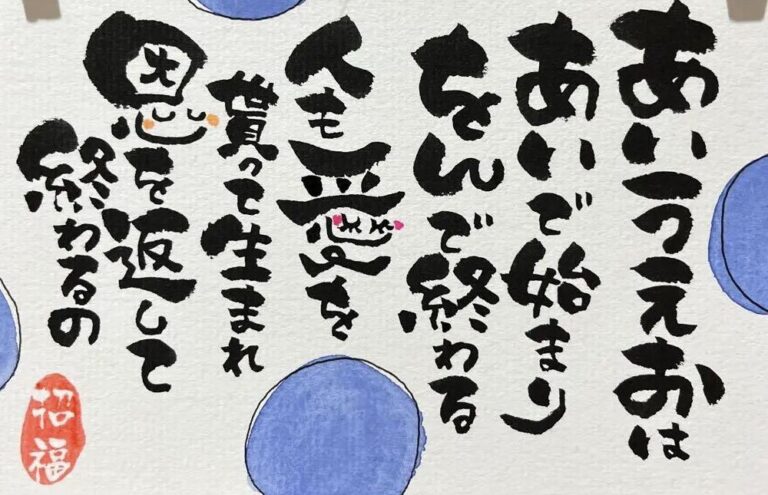 あいうえおは
あいで始まり
をんで終わる
人も愛を
貰って生まれ
恩を返して
終わるの
招福